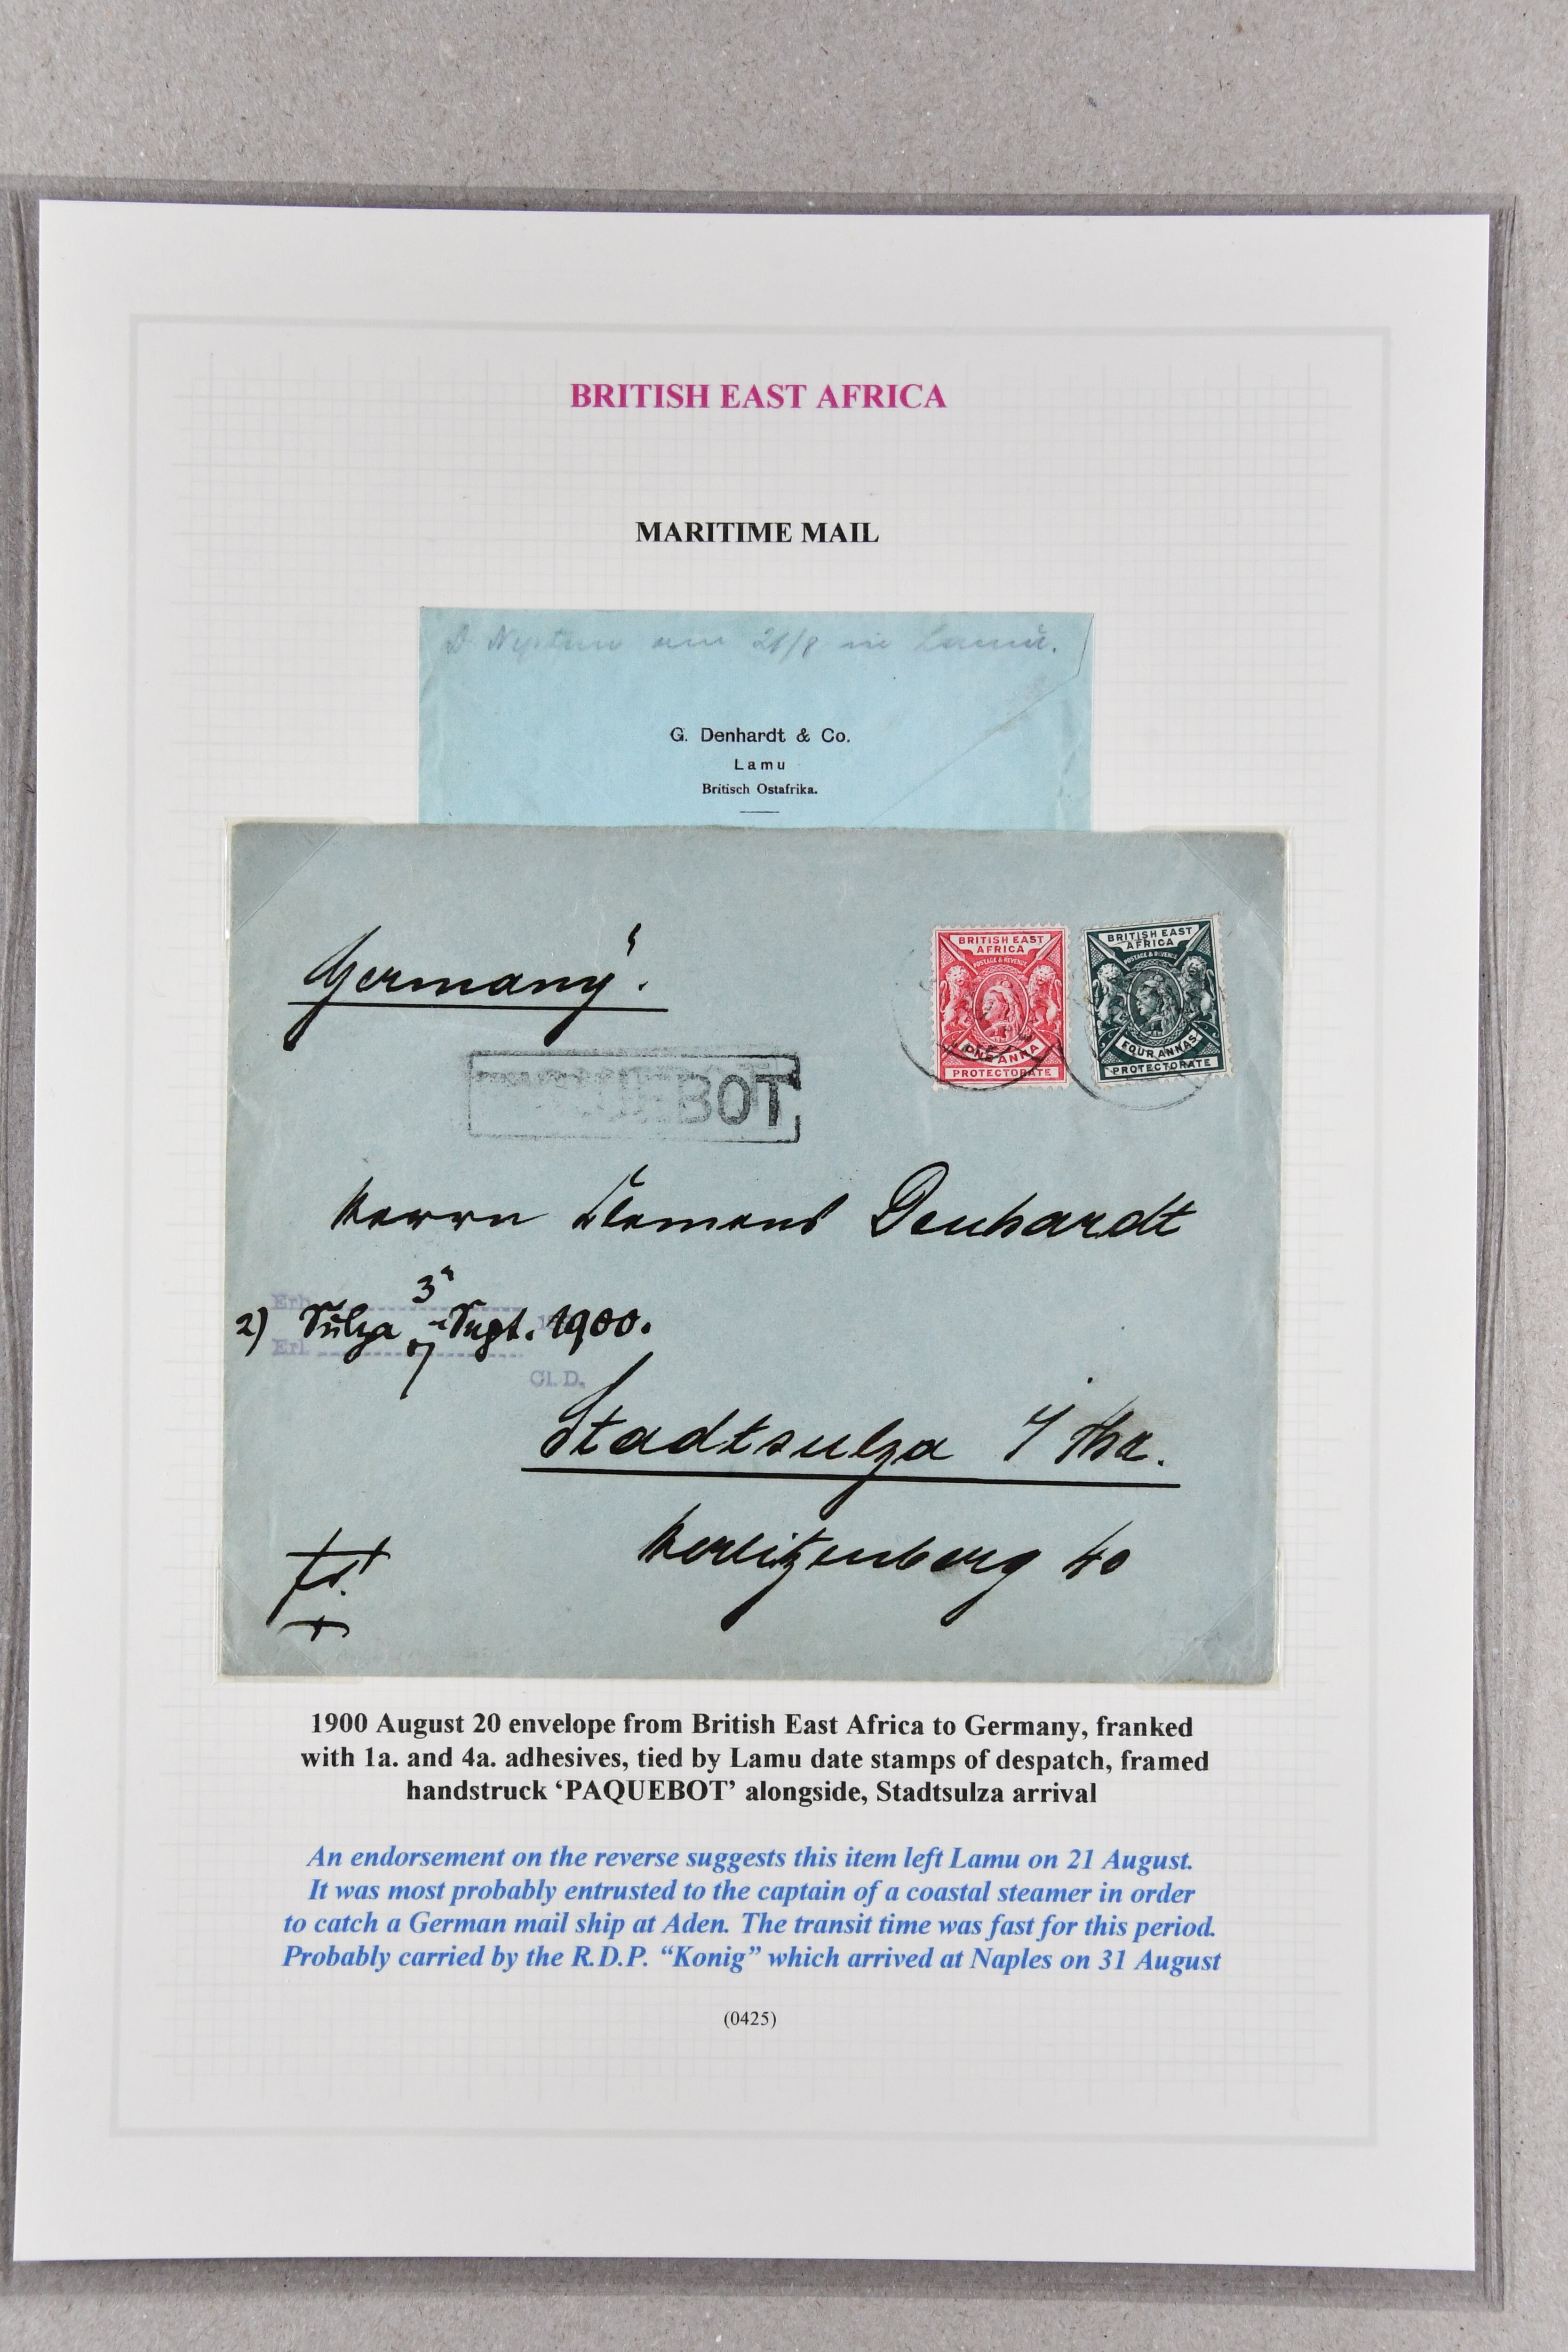 BRITISH EAST AFRICA
MARITIME MAIL
D. Neptun am 21/8 in Lamu.
G. Denhardt & Co.
Lamu
Britisch Ostafrika.
Germany.
BRITISH EAST
AFRICA
POSTAGE & REVENUE
ONE ANNA
PROTECTORATE
BRITISH EAST
AFRICA
POSTAGE & REVENUE
FOUR ANNAS
PROTECTORATE
PAQUEBOT
Herrn Clemens Denhardt
Erh
3
2) Sulza Sept. 1900.
7
Erl
Cl. D.
Stadtsulza i/Thr.
Herlitzenberg 40
1900 August 20 envelope from British East Africa to Germany, franked
with 1a. and 4a. adhesives, tied by Lamu date stamps of despatch, framed
handstruck ‘PAQUEBOT’ alongside, Stadtsulza arrival
An endorsement on the reverse suggests this item left Lamu on 21 August.
It was most probably entrusted to the captain of a coastal steamer in order
to catch a German mail ship at Aden. The transit time was fast for this period.
Probably carried by the R.D.P. “Konig” which arrived at Naples on 31 August
(0425)